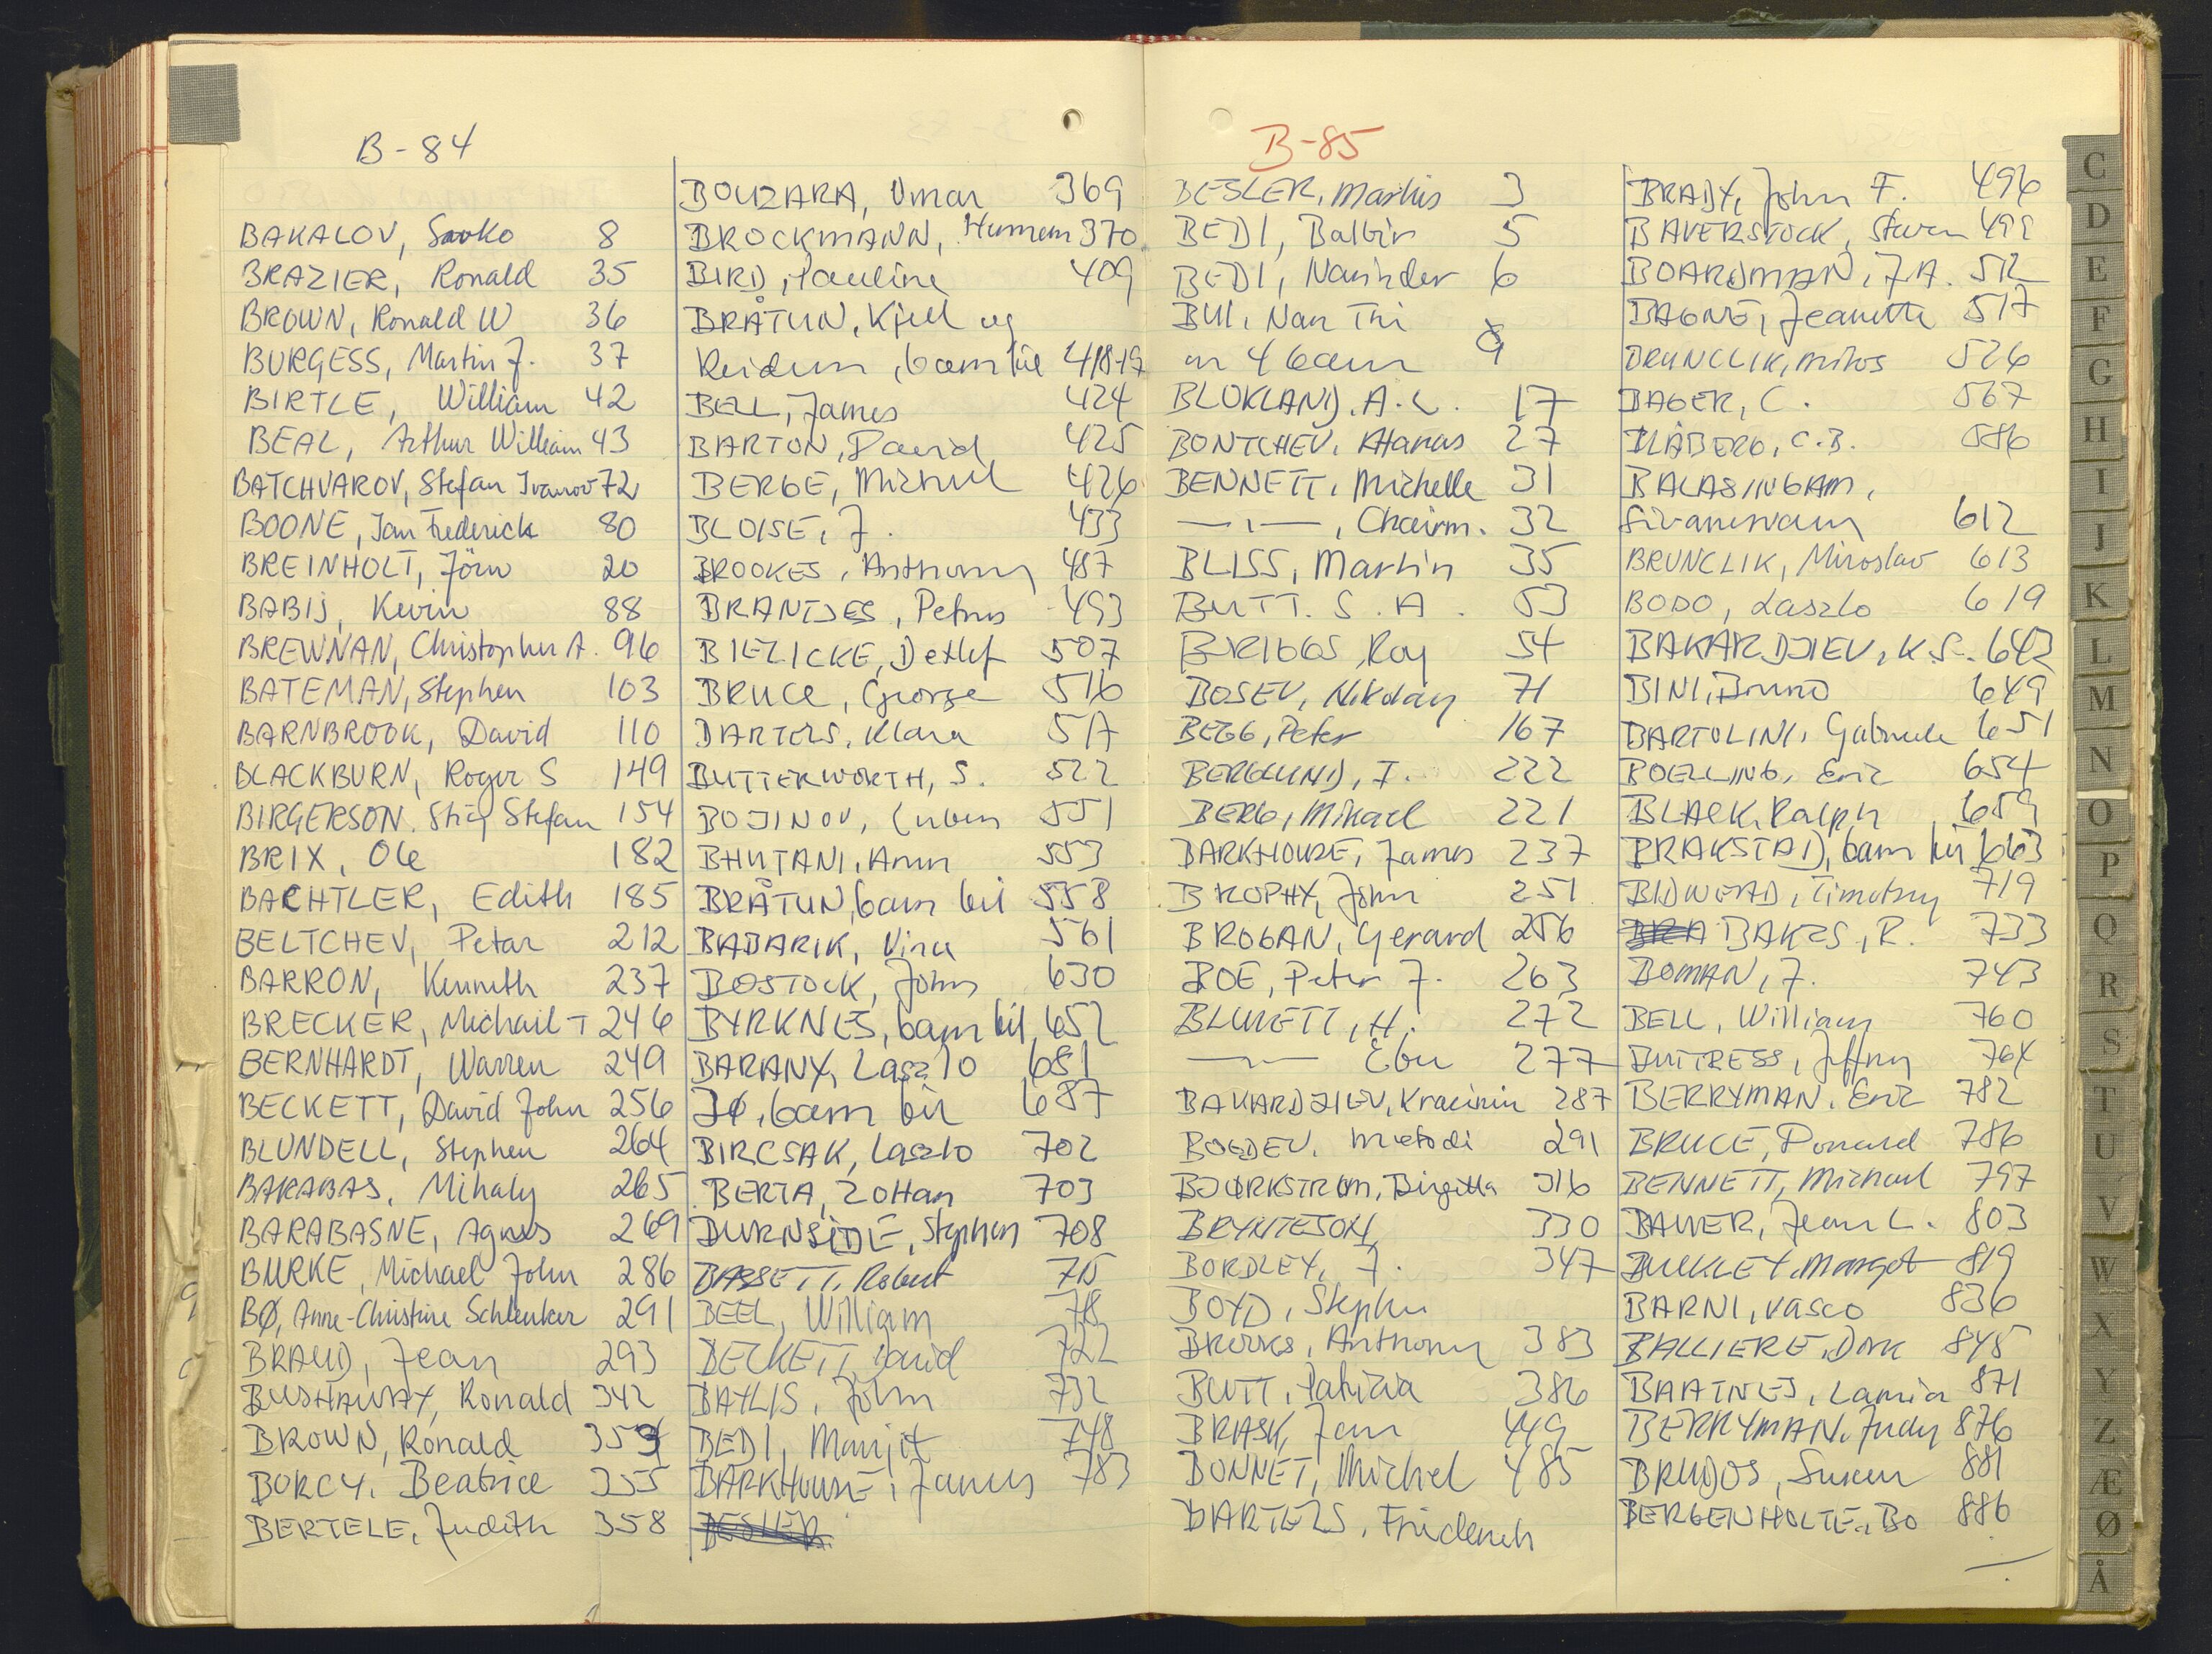 B-84
BAKALOV, Savko 8
BRAZIER, Ronald 35
BROWN, Ronald W 36
BURGESS, Martin J. 37
BIRTLE, William 42
BEAL, Arthur William 43
BATCHVAROV, Stefan Ivanov 72
BOONE, Jan Frederick 80
BREINHOLT, Jörn 20
BABIJ, Kevin 88
BREWNAN, Christopher A. 96
BATEMAN, Stephen 103
BARNBROOK, David 110
BLACKBURN, Roger S 149
BIRGERSON, Stig Stefan 154
BRIX, Ole 182
BACHTLER, Edith 185
BELTCHEV, Petar 212
BARRON, Kenneth 237
BRECKER, Michail T 246
BERNHARDT, Warren 249
BECKETT, David John 256
BLUNDELL, Stephen 264
BARABAS, Mihaly 265
BARABASNE, Agnes 269
BURKE, Michael John 286
BØ, Anne-Christine Schlenker 291
BRAUD, Jean 293
BUSHAWAY, Ronald 342
BROWN, Ronald 354
BORCY, Beatrice 355
BERTELE, Judith 358
BOUZARA, Omar 369
BROCKMANN, 370
BIRD, Pauline 409
BRÅTUN, Kjell og
Reidun, barn til 418+19
BELL, James 424
BARTON, David 425
BERGE, Michael 426
BLOISE, J. 433
BROOKES, Anthony 487
BRANTJES, Petrus 493
BIELICKE, Detlef 507
BRUCE, George 516
BARTELS, Klara 517
BUTTERWORTH, S. 522
BOJINOV, Luben 551
BHUTANI, Arun 553
BRÅTUN, barn til 558
BADARIK, Vira 561
BOSTOCK, John 630
BYRKNES, barn til 652
BARANY, Laszlo 681
BØ, barn til 687
BIRCSAK, Laszlo 702
BERTA, Zoltan 703
BURNSIDE, Stephen 708
BASSETT, Robert 715
BEEL, William 718
BECKETT, David 722
BAYLIS, John 732
BEDI, Manjit 748
BARKHOUSE, James 783
BESLER
B-85
BESLER, Martin 3
BEDI, Balbir 5
BEDI, Narinder 6
BUI, Nan Thi
m 4 barn 9
BLOKLAND, A.C. 17
BONTCHEV, Atanas 27
BENNETT, Michelle 31
—"—, Chairm. 32
BLISS, Martin 35
BUTT. S. A. 53
BRIGGS, Roy 54
BOSEV, Nikolay 71
BEGG, Peter 167
BERGLUND, I. 222
BERG, Mikael 221
BARKHOUSE, James 237
BROPHY, John 251
BROGAN, Gerard 256
BOE, Peter J. 263
BLUKETT, H. 272
—"— Ebu 277
BAKARDJIEV, Krasimir 287
BOGDEV, Metodi 291
BJØRKSTRØM, Birgitta 316
BRYNTESON, 330
BORDLEY, J. 347
BOYD, Stephen
BROOKS, Anthony 383
BUTT, Patricia 386
BRASK, Jens 449
BONNET, Michel 485
BARTELS, Friderich
BRADY, John F. 496
BAVERSTOCK, Steven 499
BOARDMAN, J.A. 512
BAGNE, Jeanette 517
BRUNCLIK, Milos 526
BAGER, C. 567
BLÅBERG, C.B. 586
BALASINGAM,
Sivaneswam 612
BRUNCLIK, Miroslav 613
BODO, Laszlo 619
BAKARDJIEV, K.S. 642
BINI, Bruno 649
BARTOLINI, Gabriele 651
BOELLING, Eric 654
BLACK, Ralph 659
BRAKSTAD, barn til 663
BIDWEAD, Timothy 719
BAKES, R. 733
BOMAN, J. 743
BELL, William 760
BUTRESS, Jeffrey 764
BERRYMAN, Eric 782
BRUCE, Donald 786
BENNETT, Michael 797
BAUER, Jean L. 803
BUCKLEY, Margot 819
BARNI, Vasco 836
BALLIERE, Dirk 845
BAATNES, Lamia 871
BERRYMAN, Judy 876
BRUDOS, Susan 881
BERGENHOLTE, Bo 886
C
D
E
F
G
H
I
J
K
L
M
N
O
P
Q
R
S
T
U
V
W
X
Y
Z
Æ
Ø
Å